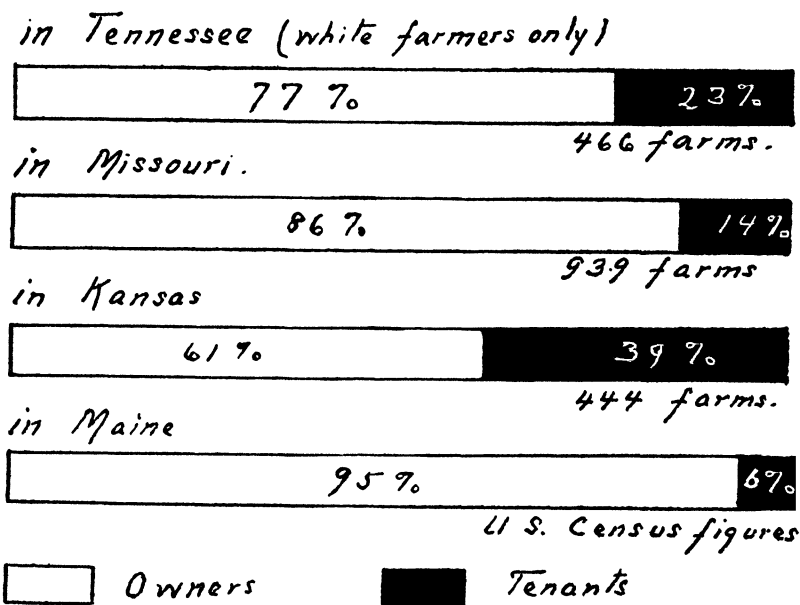 in Tennessee (white farmers only)
77 % 23%
466 farms.
in Missouri.
86 % 14%
939 farms
in Kansas
61 % 39 %
444 farms.
in Maine
95 % 6%
U S. Census figures
Owners Tenants